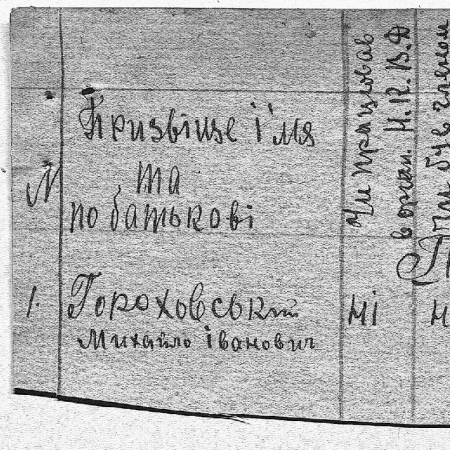 N
Призвіще і'мя
та
по батькові
Чи працював
в орган. Н.К.В.Д
Чи був членом
1. Гороховський
Михайло іванович
ні
н